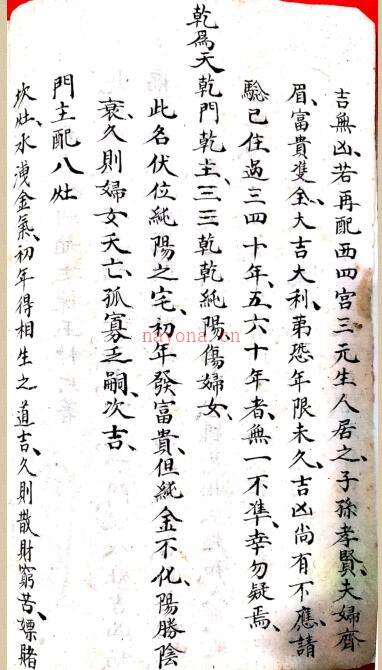 吉無凶、若再配西四宮三元生人居之、子孫孝賢、夫婦齊
眉、富貴雙全、大吉大利、第恐年限未久、吉凶尚有不應、請
驗已住過三四十年、五六十年者、無一不準、幸勿疑焉、
乾為天乾門乾主、三三乾乾純陽傷婦女、
此名伏位純陽之宅、初年發富貴、但純金不化、陽勝陰
衰、久則婦女夭亡、孤寡乏嗣、次吉、
門主配八灶
坎灶、水洩金氣、初年得相生之道吉、久則散財窮苦、嫖賭
nayona.cn